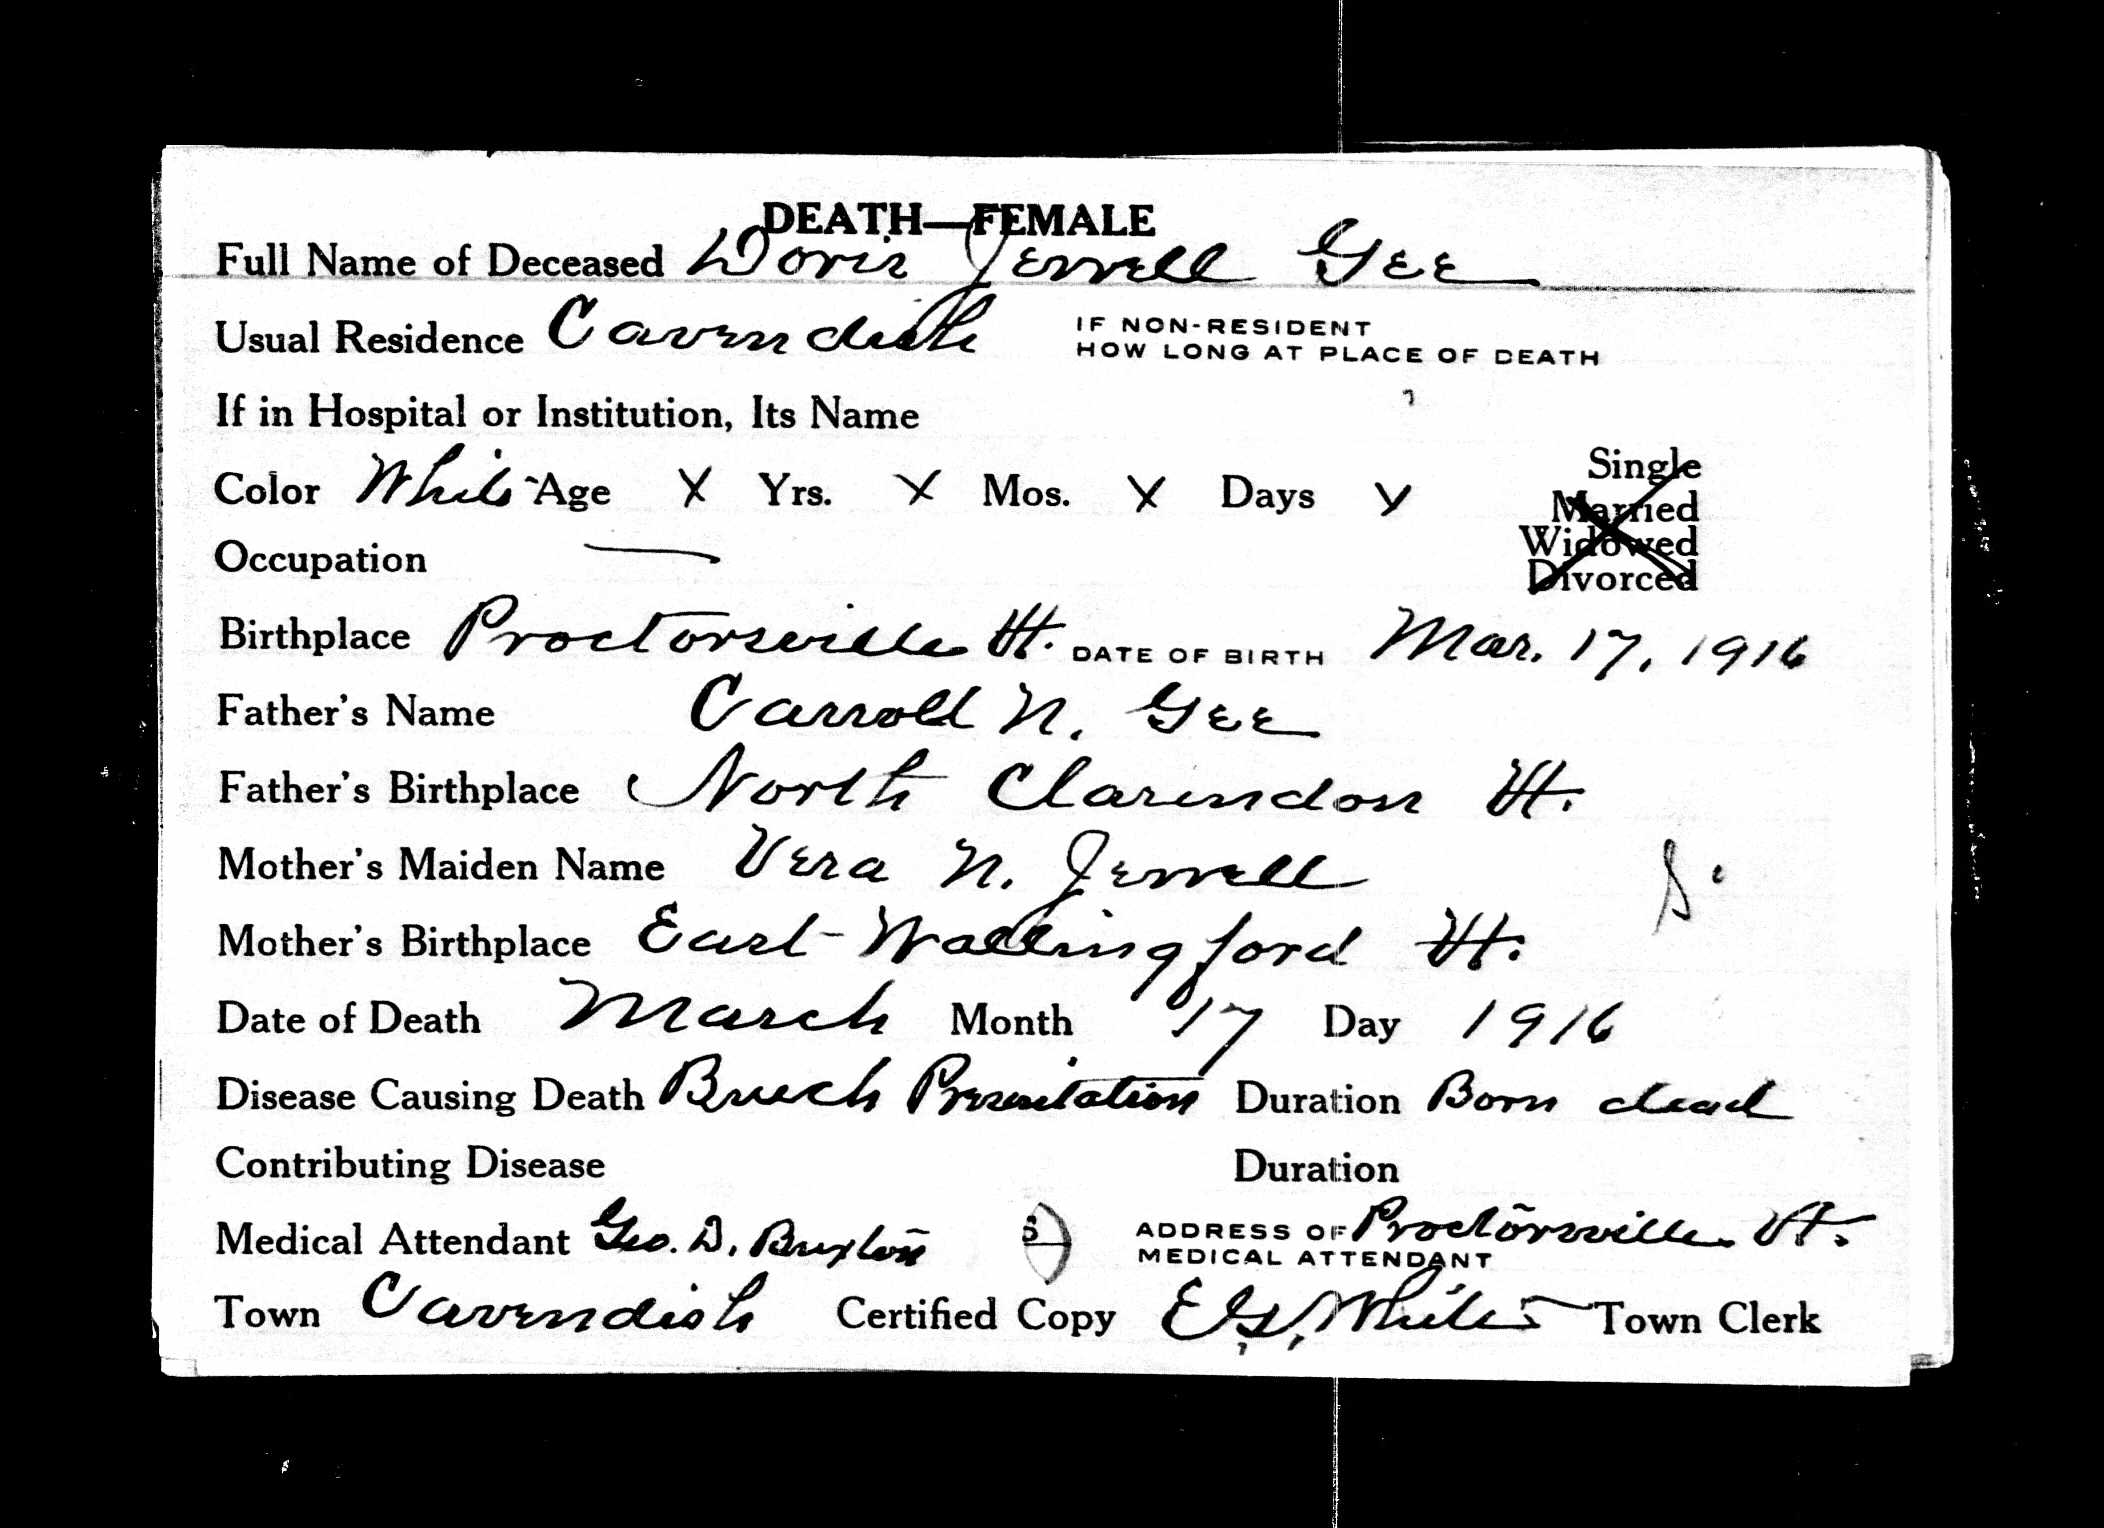 DEATH—FEMALE
Full Name of Deceased Doris Jewell Gee
Usual Residence Cavendish IF NON-RESIDENT
HOW LONG AT PLACE OF DEATH
If in Hospital or Institution, Its Name
Color White Age X Yrs. X Mos. X Days X
Single
Married
Widowed
Divorced
Occupation —
Birthplace Proctorsville Vt. DATE OF BIRTH Mar. 17, 1916
Father's Name Carroll N. Gee
Father's Birthplace North Clarendon Vt.
Mother's Maiden Name Vera N. Jewell
Mother's Birthplace East Wallingford Vt.
Date of Death March Month 17 Day 1916
Disease Causing Death Breech Presentation Duration Born dead
Contributing Disease Duration
Medical Attendant Geo. D. Buxton ADDRESS OF MEDICAL ATTENDANT Proctorsville Vt.
Town Cavendish Certified Copy E G, White Town Clerk